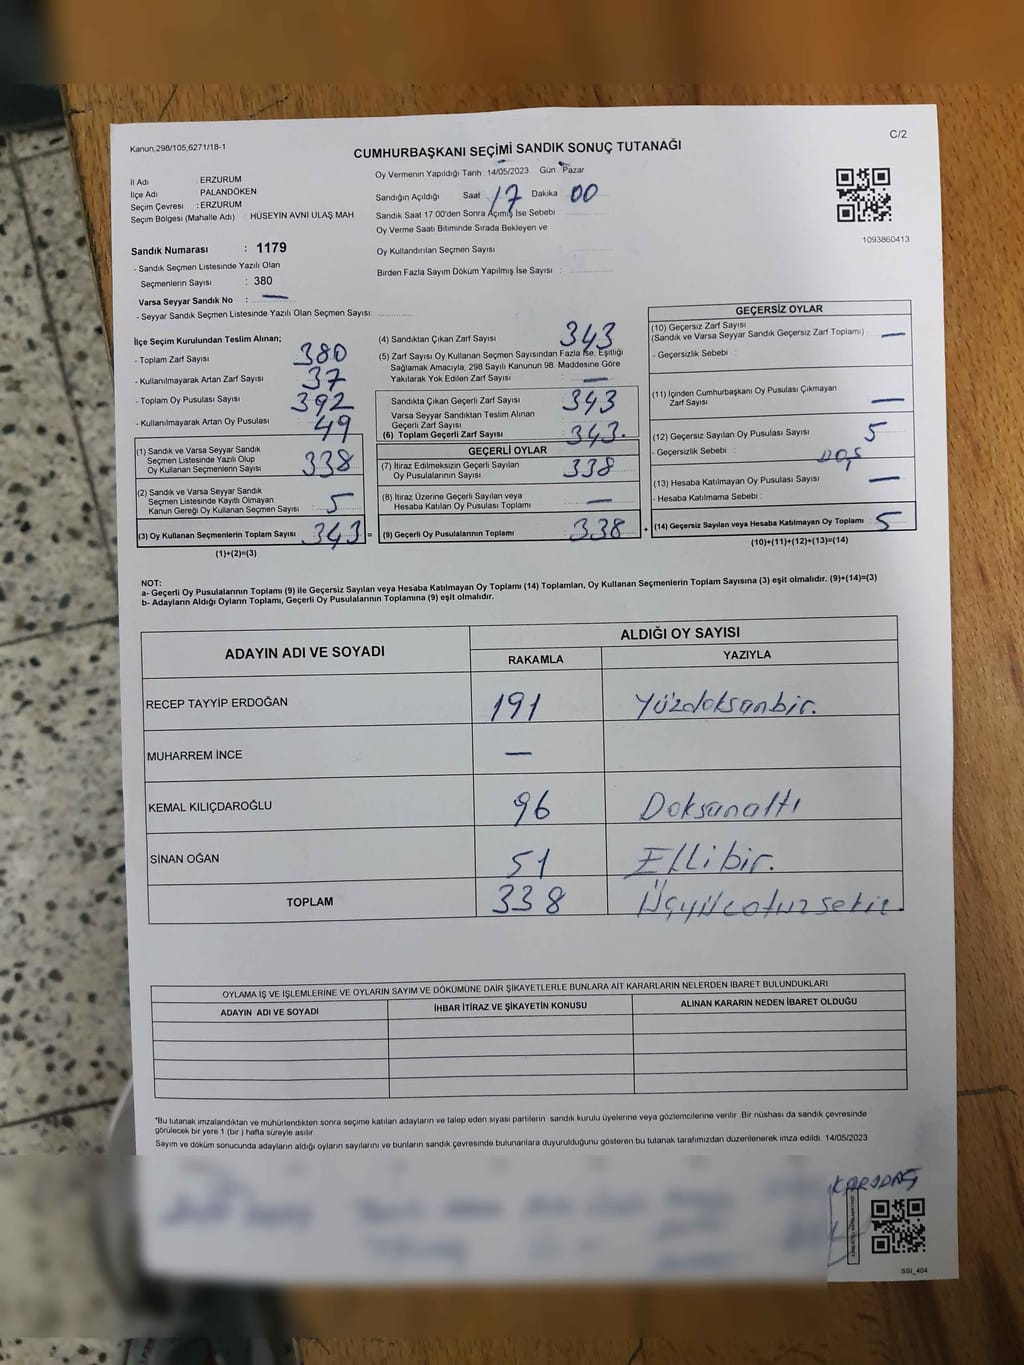 Kanun,298/105,6271/18-1
C/2
CUMHURBAŞKANI SEÇİMİ SANDIK SONUÇ TUTANAĞI
İl Adı ERZURUM
İlçe Adı PALANDÖKEN
Seçim Çevresi : ERZURUM
Seçim Bölgesi (Mahalle Adı) : HÜSEYİN AVNİ ULAŞ MAH
Sandık Numarası : 1179
- Sandık Seçmen Listesinde Yazılı Olan
Seçmenlerin Sayısı : 380
Varsa Seyyar Sandık No : —
- Seyyar Sandık Seçmen Listesinde Yazılı Olan Seçmen Sayısı:
Oy Vermenin Yapıldığı Tarih 14/05/2023 Gün Pazar
Sandığın Açıldığı Saat 17 Dakika 00
Sandık Saat 17 00'den Sonra Açımış İse Sebebi
Oy Verme Saati Bitiminde Sırada Bekleyen ve
Oy Kullandırılan Seçmen Sayısı
Birden Fazla Sayım Döküm Yapılmış İse Sayısı :
1093860413
İlçe Seçim Kurulundan Teslim Alınan;
- Toplam Zarf Sayısı 380
- Kullanılmayarak Artan Zarf Sayısı 37
- Toplam Oy Pusulası Sayısı 392
- Kullanılmayarak Artan Oy Pusulası 49
(1) Sandık ve Varsa Seyyar Sandık
Seçmen Listesinde Yazılı Olup
Oy Kullanan Seçmenlerin Sayısı 338
(2) Sandık ve Varsa Seyyar Sandık
Seçmen Listesinde Kayıtlı Olmayan
Kanun Gereği Oy Kullanan Seçmen Sayısı 5
(3) Oy Kullanan Seçmenlerin Toplam Sayısı 343 =
(1)+(2)=(3)
(4) Sandıktan Çıkan Zarf Sayısı 343
(5) Zarf Sayısı Oy Kullanan Seçmen Sayısından Fazla İse, Eşitliği
Sağlamak Amacıyla, 298 Sayılı Kanunun 98. Maddesine Göre
Yakılarak Yok Edilen Zarf Sayısı —
Sandıkta Çıkan Geçerli Zarf Sayısı 343
Varsa Seyyar Sandıktan Teslim Alınan
Geçerli Zarf Sayısı
(6) Toplam Geçerli Zarf Sayısı 343.
GEÇERLİ OYLAR
(7) İtiraz Edilmeksizin Geçerli Sayılan
Oy Pusulalarının Sayısı 338
(8) İtiraz Üzerine Geçerli Sayılan veya
Hesaba Katılan Oy Pusulası Toplamı —
(9) Geçerli Oy Pusulalarının Toplamı 338 +
GEÇERSİZ OYLAR
(10) Geçersiz Zarf Sayısı
(Sandık ve Varsa Seyyar Sandık Geçersiz Zarf Toplamı) —
- Geçersizlik Sebebi :
(11) İçinden Cumhurbaşkanı Oy Pusulası Çıkmayan
Zarf Sayısı —
(12) Geçersiz Sayılan Oy Pusulası Sayısı 5
- Geçersizlik Sebebi :
(13) Hesaba Katılmayan Oy Pusulası Sayısı —
- Hesaba Katılmama Sebebi :
(14) Geçersiz Sayılan veya Hesaba Katılmayan Oy Toplamı : 5
(10)+(11)+(12)+(13)=(14)
NOT:
a- Geçerli Oy Pusulalarının Toplamı (9) ile Geçersiz Sayılan veya Hesaba Katılmayan Oy Toplamı (14) Toplamları, Oy Kullanan Seçmenlerin Toplam Sayısına (3) eşit olmalıdır. (9)+(14)=(3)
b- Adayların Aldığı Oyların Toplamı, Geçerli Oy Pusulalarının Toplamına (9) eşit olmalıdır.
ADAYIN ADI VE SOYADI ALDIĞI OY SAYISI
RAKAMLA YAZIYLA
RECEP TAYYİP ERDOĞAN 191 Yüzdoksanbir.
MUHARREM İNCE —
KEMAL KILIÇDAROĞLU 96 Doksanaltı
SİNAN OĞAN 51 Ellibir.
TOPLAM 338
OYLAMA İŞ VE İŞLEMLERİNE VE OYLARIN SAYIM VE DÖKÜMÜNE DAİR ŞİKAYETLERLE BUNLARA AİT KARARLARIN NELERDEN İBARET BULUNDUKLARI
ADAYIN ADI VE SOYADI İHBAR İTİRAZ VE ŞİKAYETİN KONUSU ALINAN KARARIN NEDEN İBARET OLDUĞU
*Bu tutanak imzalandıktan ve mühürlendikten sonra seçime katılan adayların ve talep eden siyasi partilerin sandık kurulu üyelerine veya gözlemcilerine verilir. Bir nüshası da sandık çevresinde
görülecek bir yere 1 (bir) hafta süreyle asılır.
Sayım ve döküm sonucunda adayların aldığı oyların sayılarını ve bunların sandık çevresinde bulunanlara duyurulduğunu gösteren bu tutanak tarafımızdan düzenlenerek imza edildi. 14/05/2023
KARADAŞ
SSI_404